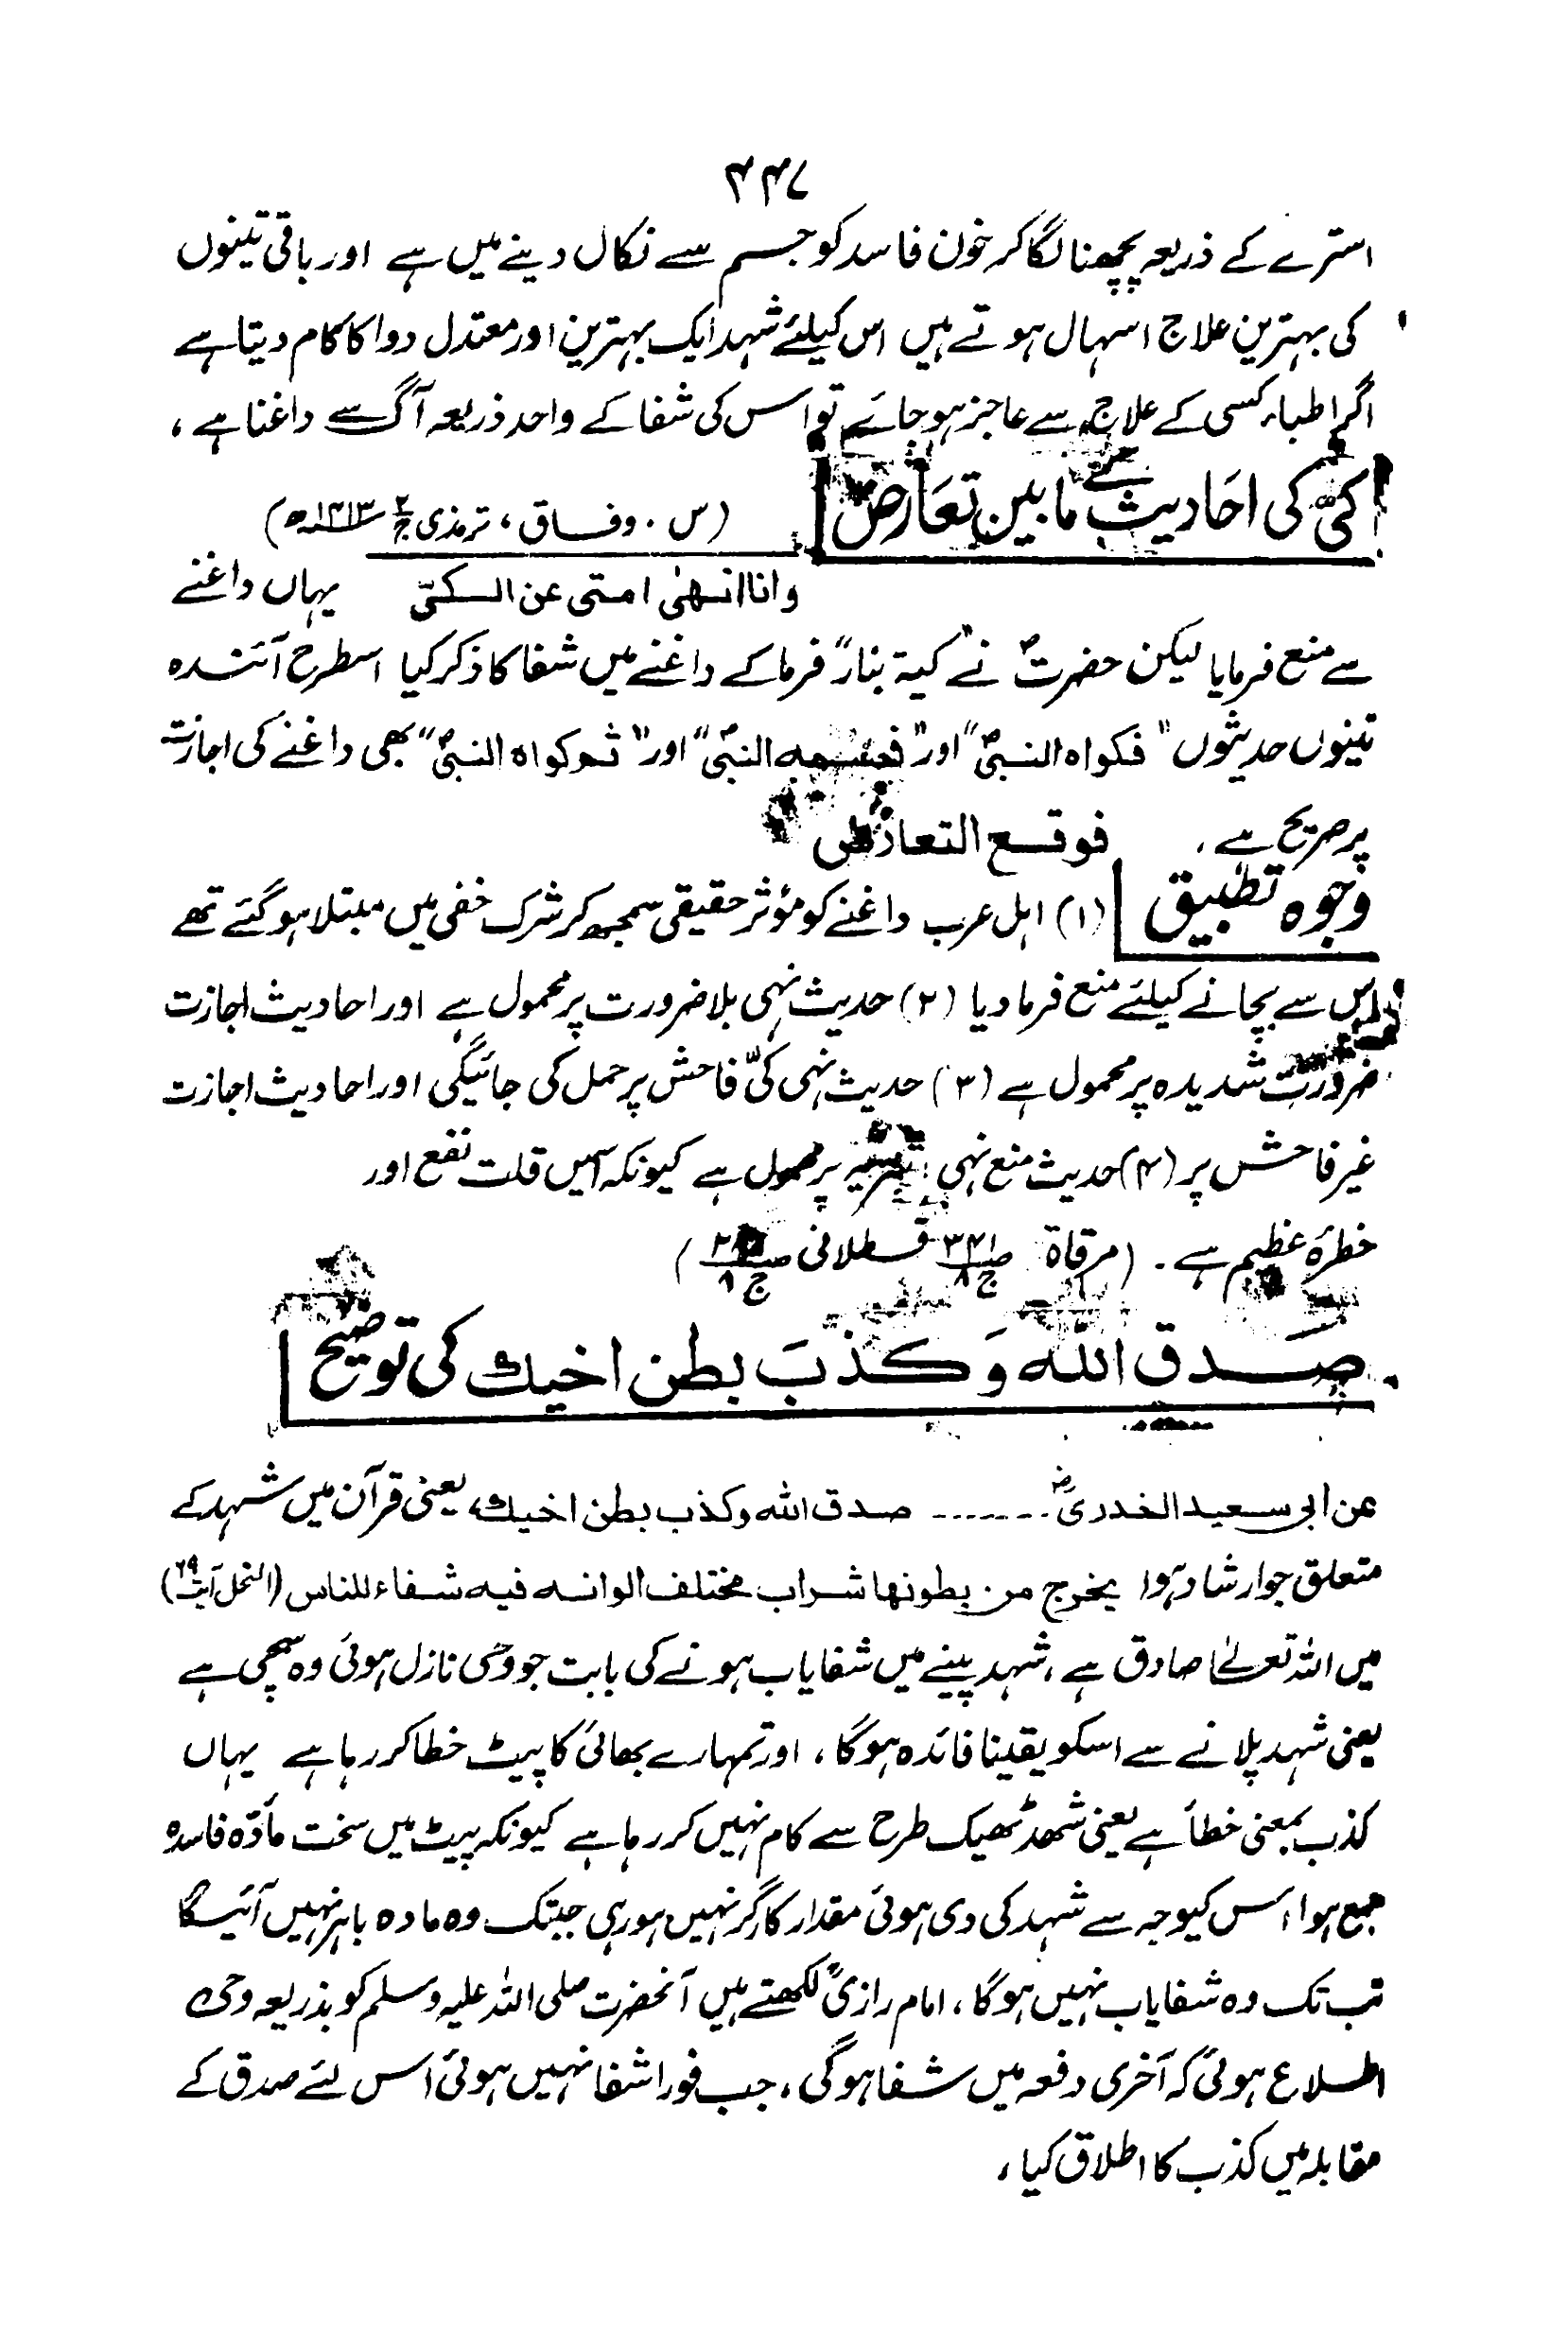 ۴۴۷
استرے کے ذریعہ پچھنا لگاکر خون فاسد کو جسم سے نکال دینے میں ہے اور باقی تینوں
کی بہترین علاج اسہال ہوتے ہیں اس کیلئے شہد ایک بہترین اور معتدل دوا کا کام دیتا ہے
اگر اطباء کسی کے علاج سے عاجز ہوجائے تو اس کی شفا کے واحد ذریعہ آگ سے داغنا ہے،
کیّ کی احادیث کے مابین تعارض (س. وفاق، ترمذی ج۲ ۱۴۱۳ھ)
وانا انھیٰ امتی عن الکیّ یہاں داغنے
سے منع فرمایا لیکن حضرتؐ نے "کیۃ بنار" فرماکے داغنے میں شفا کا ذکر کیا اسطرح آئندہ
تینوں حدیثوں "فکواہ النبیؐ" اور "فحسمہ النبیؐ" اور "ثم کواہ النبیؐ" بھی داغنے کی اجازت
پر صریح ہے، فوقع التعارض
وجوہ تطبیق (۱) اہل عرب داغنے کو مؤثر حقیقی سمجھ کر شرک خفی میں مبتلا ہوگئے تھے
اس سے بچانے کیلئے منع فرمادیا (۲) حدیث نہی بلاضرورت پر محمول ہے اور احادیث اجازت
ضرورت شدیدہ پر محمول ہے (۳) حدیث نہی کیّ فاحش پر حمل کی جائیگی اور احادیث اجازت
غیر فاحش پر (۴) حدیث منع نہی تنزیہ پر محمول ہے کیونکہ اسمیں قلت نفع اور
خطرۂ عظیم ہے۔ (مرقاۃ ص۳۴۱ ج۸ قسطلانی ج۸)
صدق اللہ وَکذبَ بطن اخیك کی توضیح
عن ابی سعید الخدریؓ ....... صدق اللہ وکذب بطن اخیك، یعنی قرآن میں شہد کے
متعلق جو ارشاد ہوا یخرج من بطونها شراب مختلف الوانه فیه شفاء للناس (النحل آیت ۶۹)
میں اللہ تعالےٰ صادق ہے، شہد پینے میں شفایاب ہونے کی بابت جو وحی نازل ہوئی وہ سچی ہے
یعنی شہد پلانے سے اسکو یقینا فائدہ ہوگا، اور تمہارے بھائی کا پیٹ خطا کر رہا ہے یہاں
کذب بمعنی خطأ ہے یعنی شھد ٹھیک طرح سے کام نہیں کر رہا ہے کیونکہ پیٹ میں سخت مادّہ فاسدہ
جمع ہوا، اس کیوجہ سے شہد کی دی ہوئی مقدار کارگر نہیں ہورہی جبتک وہ مادہ باہر نہیں آئیگا
تب تک وہ شفایاب نہیں ہوگا، امام رازیؒ لکھتے ہیں آنحضرت صلی اللہ علیہ وسلم کو بذریعہ وحی
اطلاع ہوئی کہ آخری دفعہ میں شفا ہوگی، جب فورا شفا نہیں ہوئی اس لئے صدق کے
مقابلہ میں کذب کا اطلاق کیا،